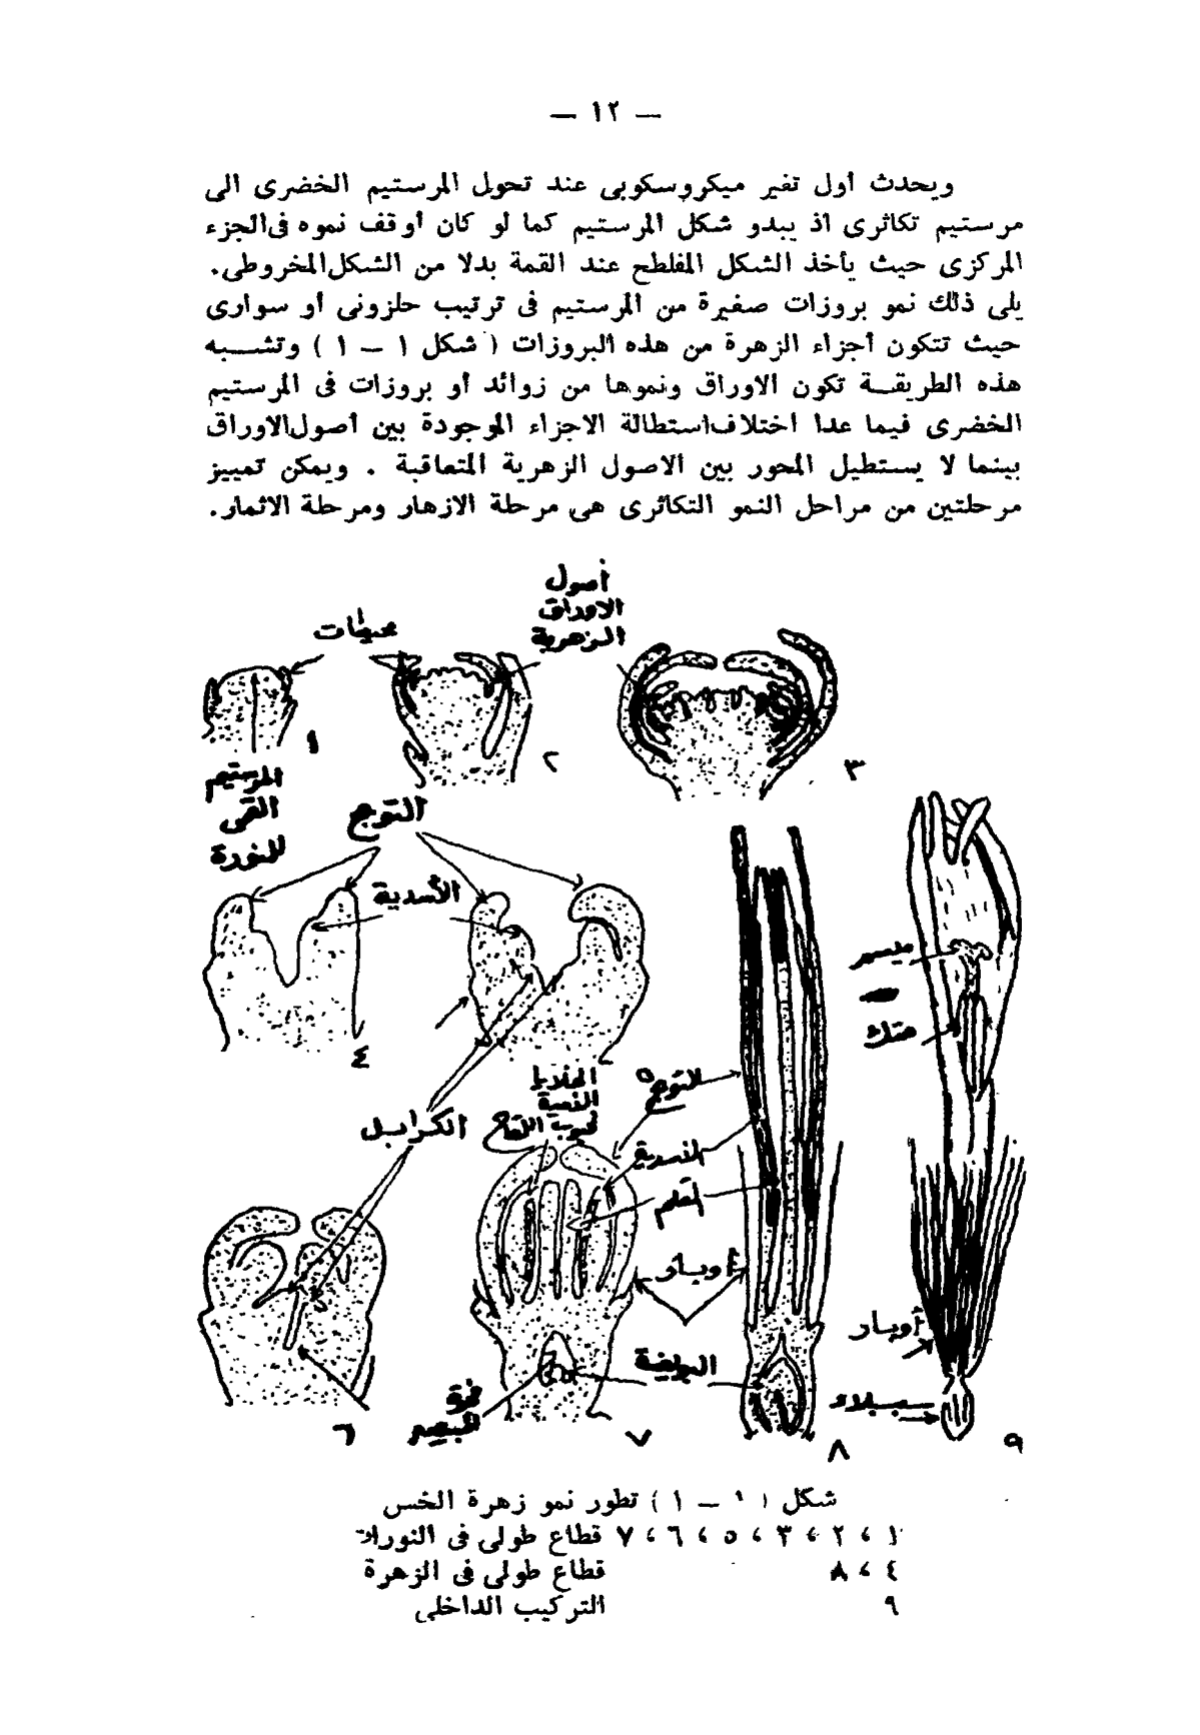 — ١٢ —
ويحدث أول تغير ميكروسكوبى عند تحول المرستيم الخضرى الى
مرستيم تكاثرى اذ يبدو شكل المرستيم كما لو كان أوقف نموه فى الجزء
المركزى حيث يأخذ الشكل المفلطح عند القمة بدلا من الشكل المخروطى.
يلى ذلك نمو بروزات صغيرة من المرستيم فى ترتيب حلزونى أو سوارى
حيث تتكون أجزاء الزهرة من هذه البروزات ( شكل ١ – ١ ) وتشبه
هذه الطريقة تكون الاوراق ونموها من زوائد أو بروزات فى المرستيم
الخضرى فيما عدا اختلاف استطالة الاجزاء الموجودة بين أصول الاوراق
بينما لا يستطيل المحور بين الاصول الزهرية المتعاقبة . ويمكن تمييز
مرحلتين من مراحل النمو التكاثرى هى مرحلة الازهار ومرحلة الاثمار.
أصول
الاوراق
الزهرية
محيطات
١
٢
٣
المرستيم
القمى
للنورة
التوج
الأسدية
ميسم
متك
٤
الكرابل
الخلايا
الأمية
لحبوب اللقاح
التوج
الأسدية
القلم
أوبار
البويضة
أوبار
سبلاء
٦
٧
٨
٩
شكل ( ١ – ١ ) تطور نمو زهرة الخس
١ ، ٢ ، ٣ ، ٥ ، ٦ ، ٧ قطاع طولى فى النورات
٤ ، ٨ قطاع طولى فى الزهرة
٩ التركيب الداخلى